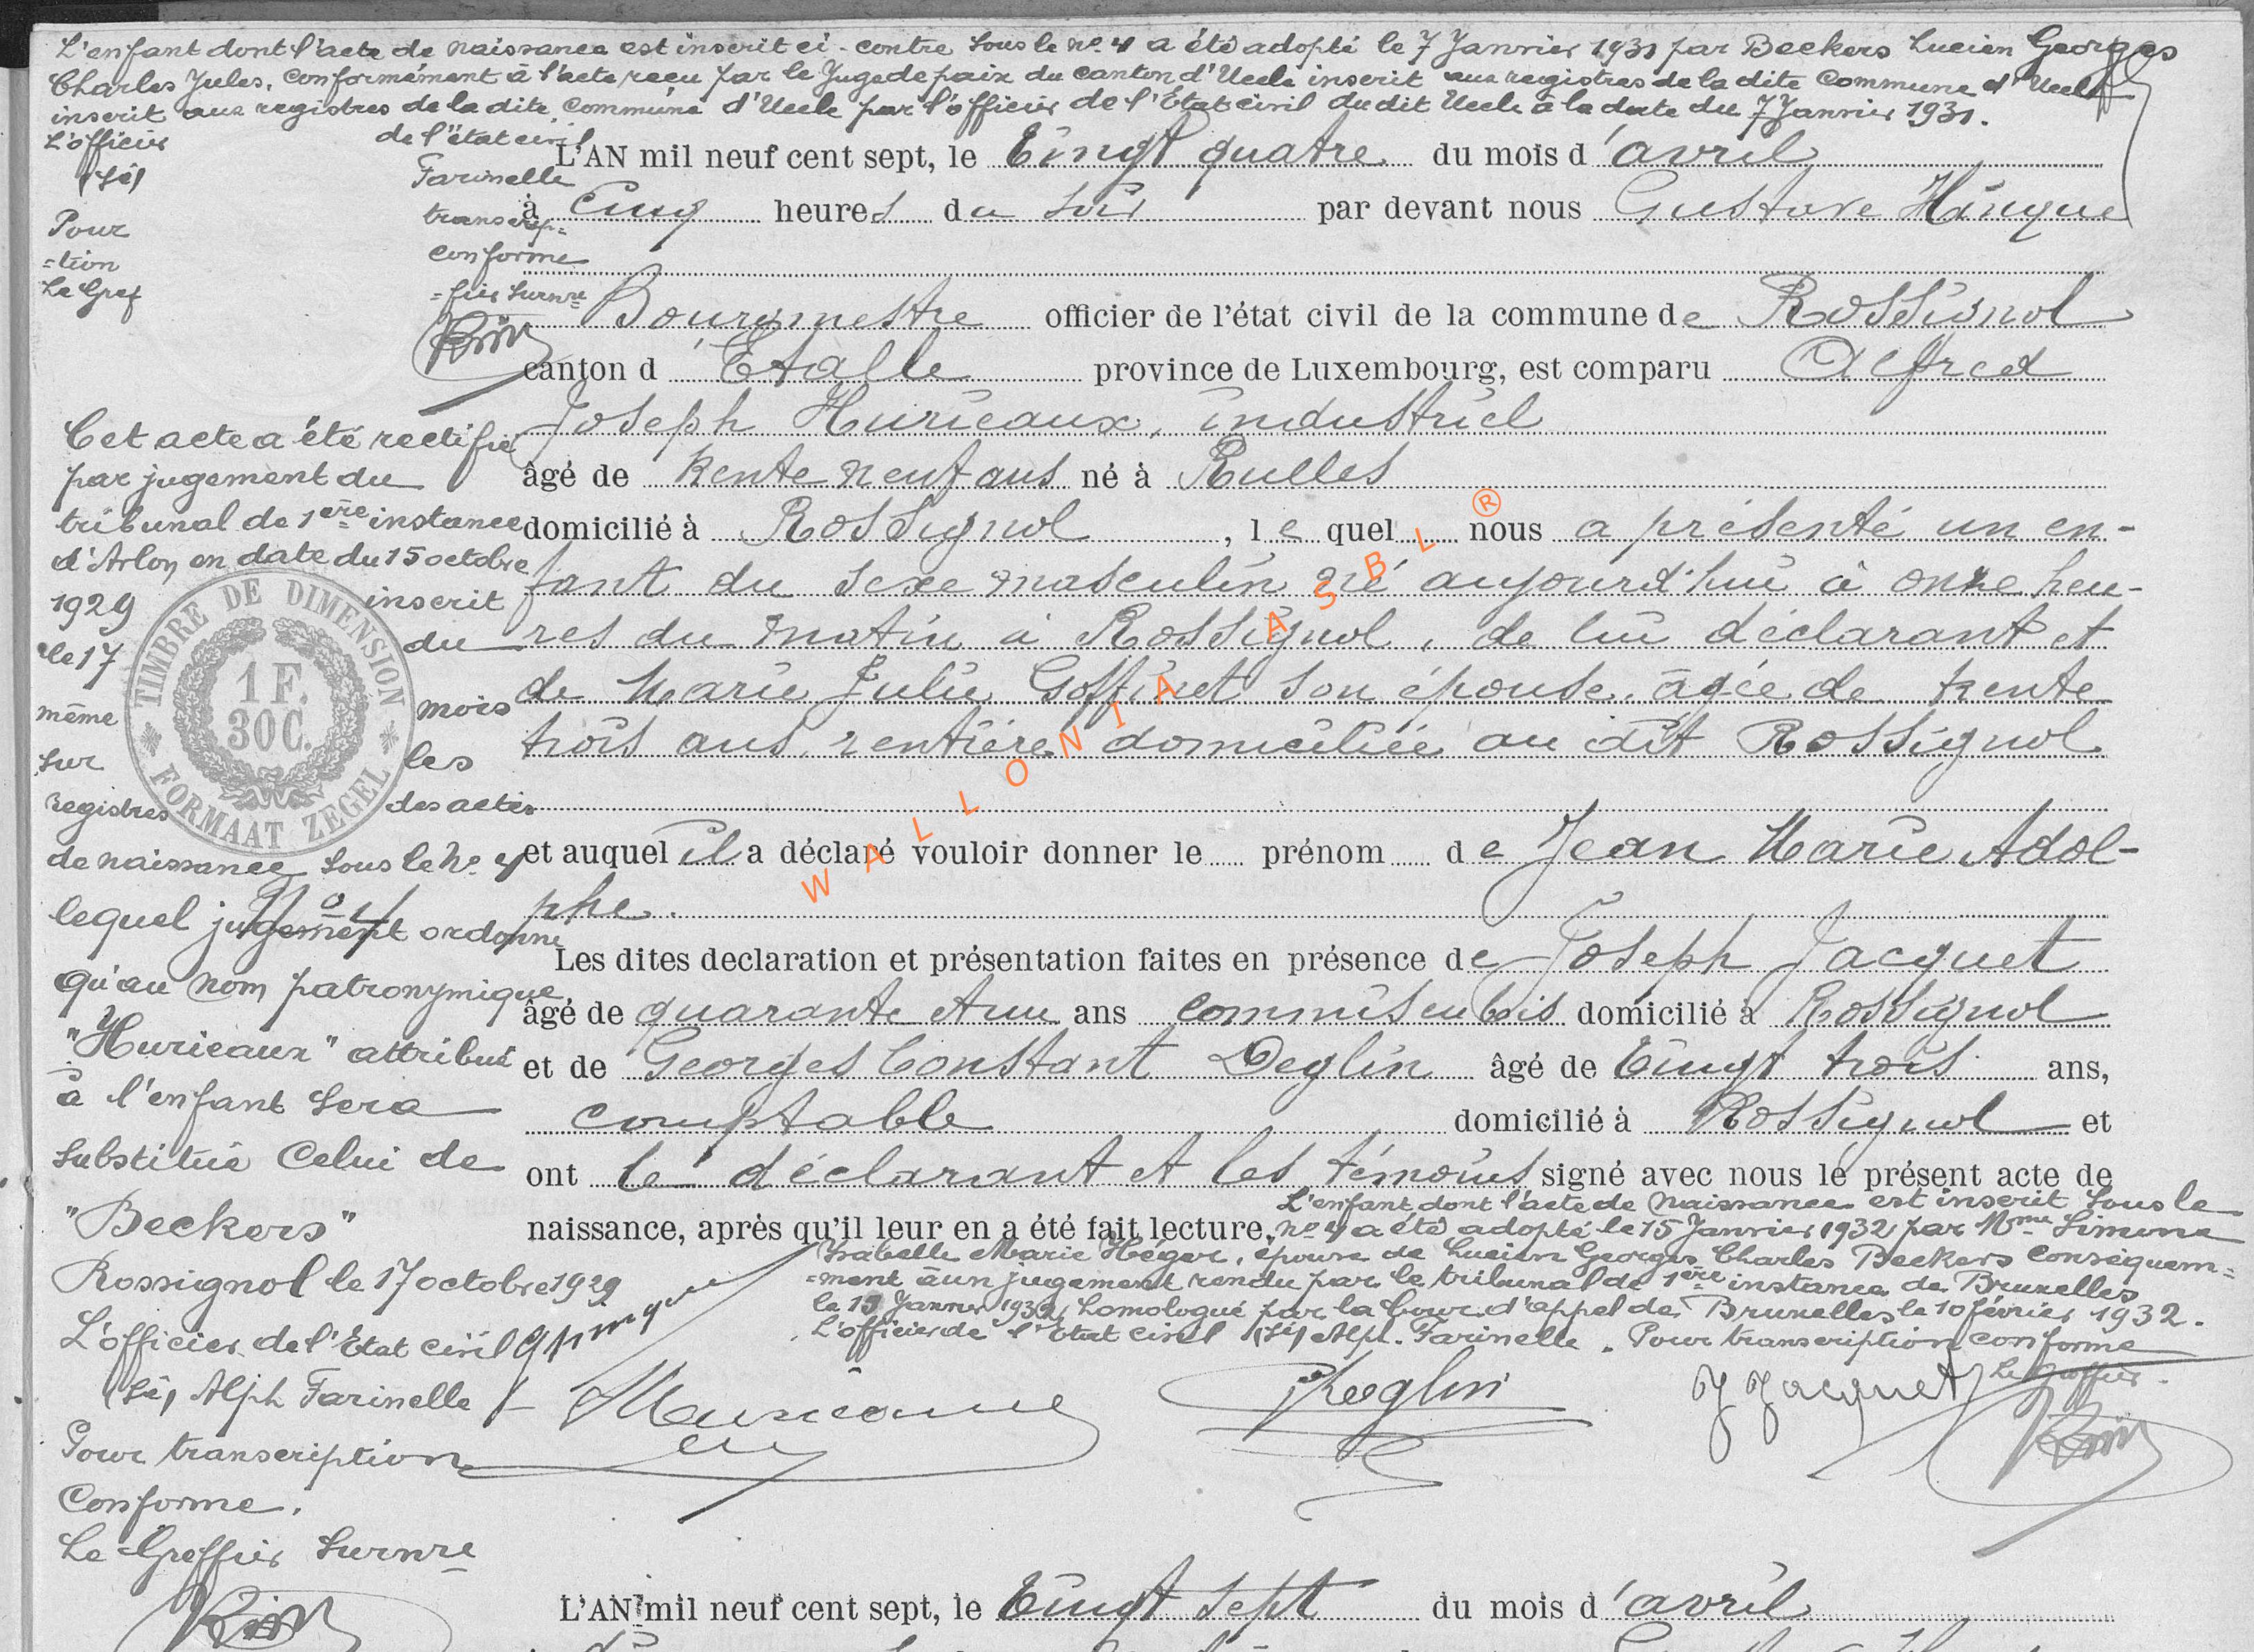 L'enfant dont l'acte de naissance est inscrit ci-contre sous le no 4 a été adopté le 7 Janvier 1931 par Beckers Lucien Georges
Charles Jules, conformément à l'acte reçu par le Juge de paix du canton d'Uccle inscrit aux registres de la dite commune d'Uccle
inscrit aux registres de la dite commune d'Uccle par l'officier de l'Etat civil du dit Uccle à la date du 7 Janvier 1931.
L'officier de l'état civil
(Sé) Farinelle
Pour transcrip=
=tion conforme
Le Gref=fier Surnre
L'AN mil neuf cent sept, le Vingt quatre du mois d'avril
à cinq heures du soir par devant nous Gustave Hanque
Bourgmestre officier de l'état civil de la commune de Rossignol
canton d'Etalle province de Luxembourg, est comparu Alfred
Joseph Hurieaux, industriel
âgé de trente neuf ans né à Rulles
domicilié à Rossignol, le quel nous a présenté un en-
fant du sexe masculin né aujourd'hui à onze heu-
res du matin à Rossignol, de lui déclarant et
de Marie Julie Goffinet son épouse, âgée de trente
trois ans, rentière domiciliée au dit Rossignol
et auquel il a déclaré vouloir donner le prénom de Jean Marie Adol-
phe.
Les dites declaration et présentation faites en présence de Joseph Jacquet
âgé de quarante et un ans commis en bois domicilié à Rossignol
et de Georges Constant Deglin âgé de Vingt trois ans,
comptable domicilié à Rossignol et
ont le déclarant et les témoins signé avec nous le présent acte de
naissance, après qu'il leur en a été fait lecture.
L'enfant dont l'acte de naissance est inscrit sous le
no 4 a été adopté le 15 Janvier 1932 par Mme Simone
Isabelle Marie Héger, épouse de Lucien Georges Charles Beckers conséquem=
=ment à un jugement rendu par le tribunal de 1ère instance de Bruxelles
le 15 Janvier 1932 homologué par la Cour d'appel de Bruxelles le 10 février 1932.
L'officier de l'Etat civil (Sé) Alph. Farinelle. Pour transcription conforme
Le Greffier
Deglin
J Jacquet
Cet acte a été rectifié
par jugement du
tribunal de 1ère instance
d'Arlon en date du 15 octobre
1929 inscrit
le 17 du
même mois
sur les
registres des actes
de naissance sous le no 4
No 4
lequel jugement ordonne
qu'au nom patronymique
"Hurieaux" attribué
à l'enfant sera
substitué celui de
"Beckers"
Rossignol le 17 octobre 1929
L'officier de l'Etat civil
(Sé) Alph Farinelle
Pour transcription
Conforme.
Le Greffier Surnre
TIMBRE DE DIMENSION
1 F.
30 C.
FORMAAT ZEGEL
WALLONIA ASBL ®
L'AN mil neuf cent sept, le Vingt sept du mois d'avril